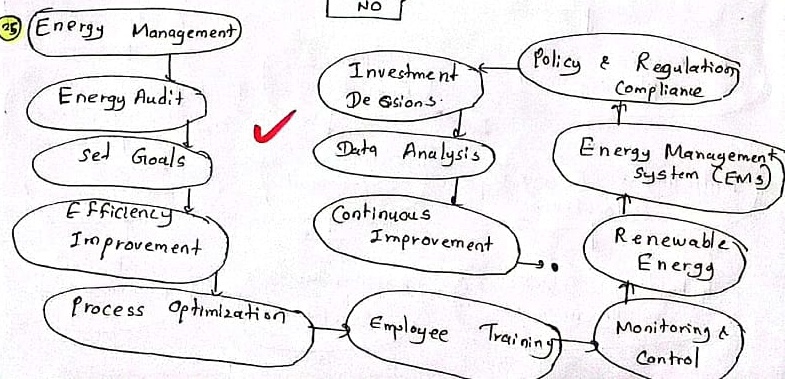 NO
25
Energy Management
Energy Audit
Set Goals
Efficiency
Improvement
Process Optimization
Employee Training
Monitoring &
Control
Renewable
Energy
Energy Management
System (EMS)
Policy & Regulation
Compliance
Investment
Decisions.
Data Analysis
Continuous
Improvement